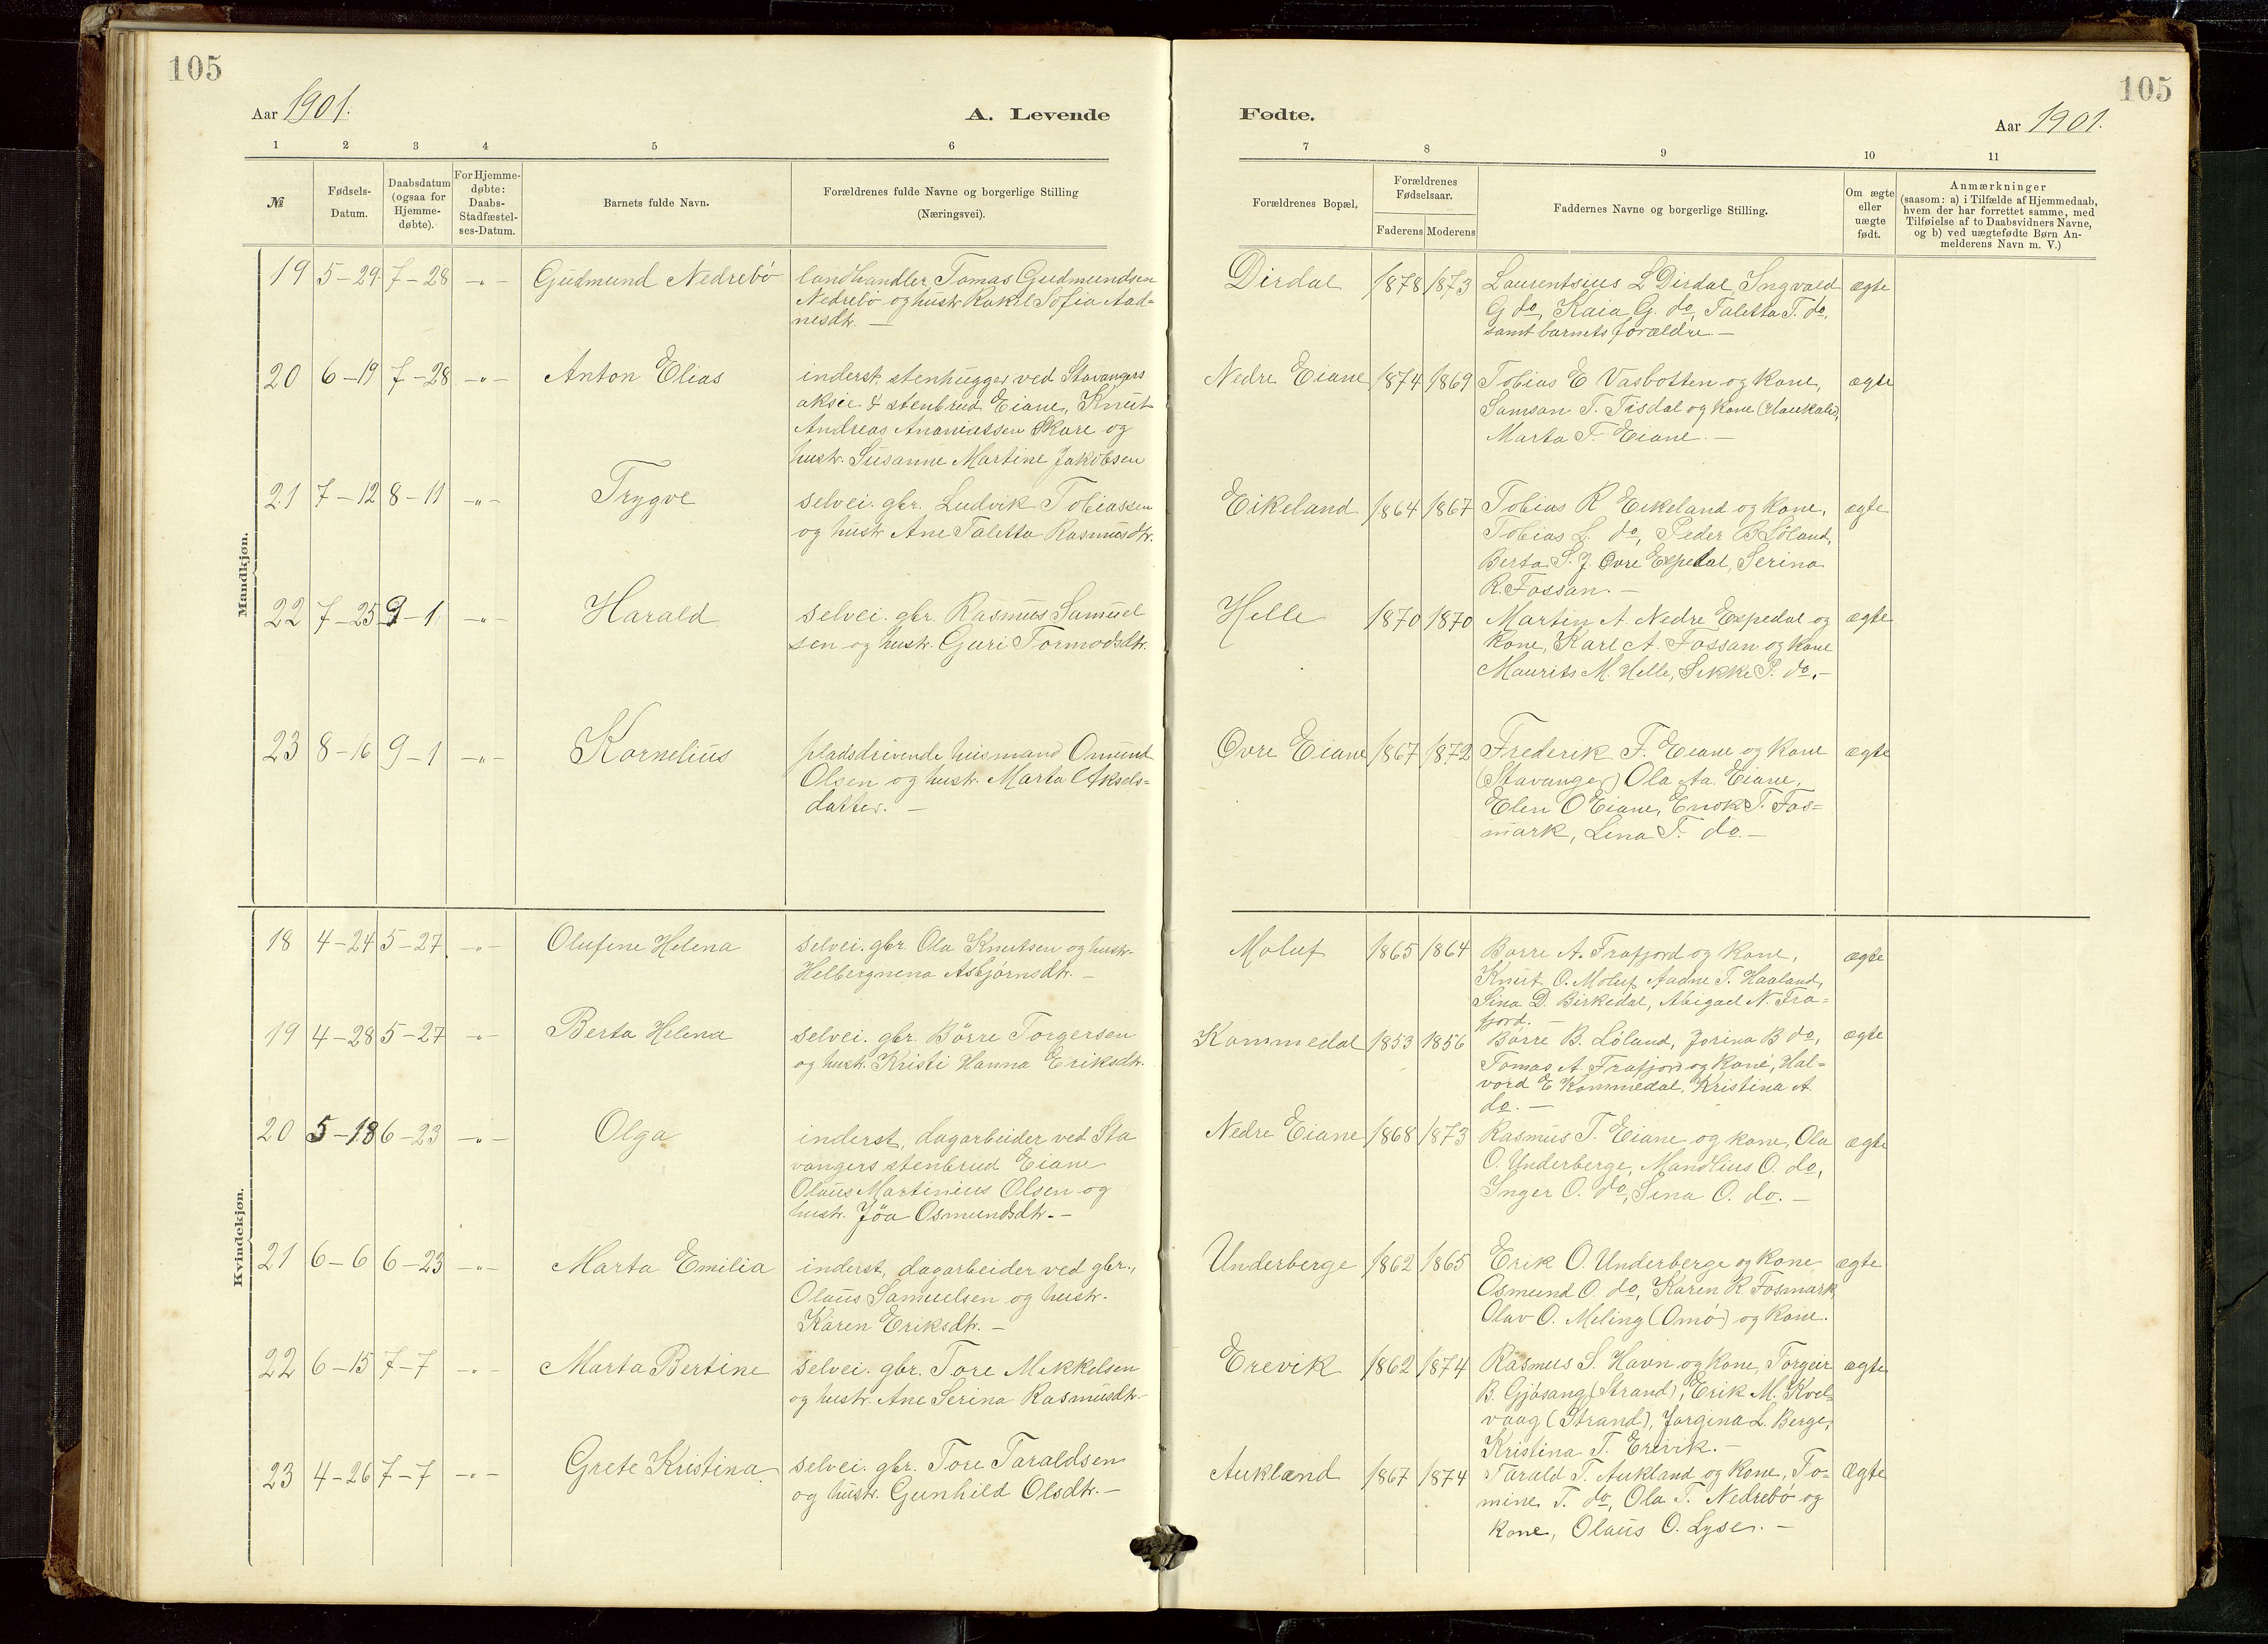 105
105
Aar 1901.
A. Levende
Fødte.
Aar 1901.
1 2 3 4 5 6
7 8 9 10 11
№
Fødsels-
Datum.
Daabsdatum
(ogsaa for
Hjemme-
døbte).
For Hjemme-
døbte:
Daabs-
Stadfæstel-
ses-Datum.
Barnets fulde Navn.
Forældrenes fulde Navne og borgerlige Stilling
(Næringsvei).
Forældrenes Bopæl.
Forældrenes
Fødselsaar.
Faderens Moderens
Faddernes Navne og borgerlige Stilling.
Om ægte
eller
uægte
født.
Anmærkninger
(saasom: a) i Tilfælde af Hjemmedaab,
hvem der har forrettet samme, med
Tilføielse af to Daabsvidners Navne,
og b) ved uægtefødte Børn An-
melderens Navn m. V.)
Mandkjøn.
19 5-29 7-28 -„- Gudmund Nedrebö
landhandler Tomas Gudmundsen
Nedrebö og hustr. Rakel Sofia Aad-
nesdtr. —
Dirdal 1878 1873
Laurentsius L Dirdal, Ingvald
G do, Kaia G. do, Taletta T. do,
samt barnets forældre —
ægte
20 6-19 7-28 -„- Anton Elias
inderst, stenhugger ved Stavangers
aksie & stenbrud Eiane, Knut
Andreas Ananiassen Skare og
hustr. Susanne Martine Jakobsen
Nedre Eiane 1874 1869
Tobias E Vasbotten og kone,
Samson T. Tisdal og kone (Haukalid),
Marta T. Eiane. —
ægte
21 7-12 8-11 -„- Trygve
selvei. gbr. Ludvik Tobiassen
og hustr Ane Taletta Rasmusdtr.
Eikeland 1864 1867
Tobias R Eikeland og kone,
Tobias L. do, Peder B Löland,
Berta S. J. Øvre Espedal, Serina
R. Fossan. —
ægte
22 7-25 9-1 -„- Harald
selvei. gbr. Rasmus Samuel
sen og hustr. Guri Tormodsdtr.
Helle 1870 1870
Martin A. Nedre Espedal og
kone, Karl A. Fossan og kone
Maurits M. Helle, Sikke P. do. —
ægte
23 8-16 9-1 -„- Kornelius
pladsdrivende husmand Omund
Olsen og hustr. Marta Aksels-
datter. —
Øvre Eiane 1867 1872
Frederik F. Eiane og kone
(Stavanger) Ola Aa. Eiane,
Elen O Eiane, Enok T. Fos-
mark, Lina T. do. —
ægte
Kvindekjøn.
18 4-24 5-27 -„- Olufine Helena
selvei. gbr. Ola Knutsen og hustr.
Helbergnena Asbjörnsdtr. —
Moluf 1865 1864
Børre A. Frafjord og kone,
Knut O. Moluf Aadne T. Haaland,
Sina D. Birkedal, Abigael N. Fra-
fjord.
ægte
19 4-28 5-27 -„- Berta Helena
selvei. gbr. Börre Torgersen
og hustr. Kristi Hanna Eriksdtr.
Kommedal 1853 1856
Børre B. Löland, Jorina B do,
Tomas A. Frafjord og kone, Hal-
vord E Kommedal, Kristina A.
do. —
ægte
20 5-18 6-23 -„- Olga
inderst, dagarbeider ved Sta
vangers stenbrud Eiane
Olaus Martinius Olsen og
hustr. Jöa Osmundsdtr. —
Nedre Eiane 1868 1873
Rasmus T. Eiane og kone, Ola
O. Underberge, Mandlius O. do,
Inger O. do, Sina O. do. —
ægte
21 6-6 6-23 -„- Marta Emilia
inderst, dagarbeider ved gbr.,
Olaus Samuelsen og hustr.
Karen Eriksdtr. —
Underberge 1862 1865
Erik O. Underberge og kone
Osmund O. do, Karen R. Fosmark
Olav O. Meling (Omö) og kone.
ægte
22 6-15 7-7 -„- Marta Bertine
selvei. gbr. Tore Mikkelsen
og hustr. Ane Serina Rasmusdtr. —
Erevik 1862 1874
Rasmus S. Havn og kone, Torgeir
B. Gjösang (Strand), Erik M. Kvel-
vaag (Strand), Jorgina L. Berge,
Kristina T. Erevik. —
ægte
23 4-26 7-7 -„- Grete Kristina
selvei. gbr. Tore Taraldsen
og hustr. Gunhild Olsdtr. —
Aukland 1867 1874
Tarald T. Aukland og kone, To-
mine T. do, Ola T. Nedrebö og
kone, Olaus O. Lyse. —
Ægte